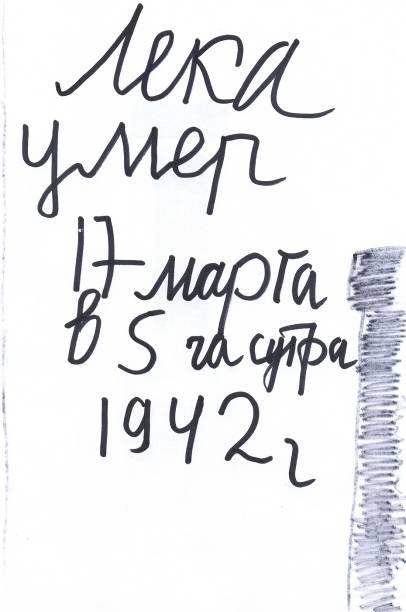 Лека
умер
17 марта
в 5 часутра
1942 г